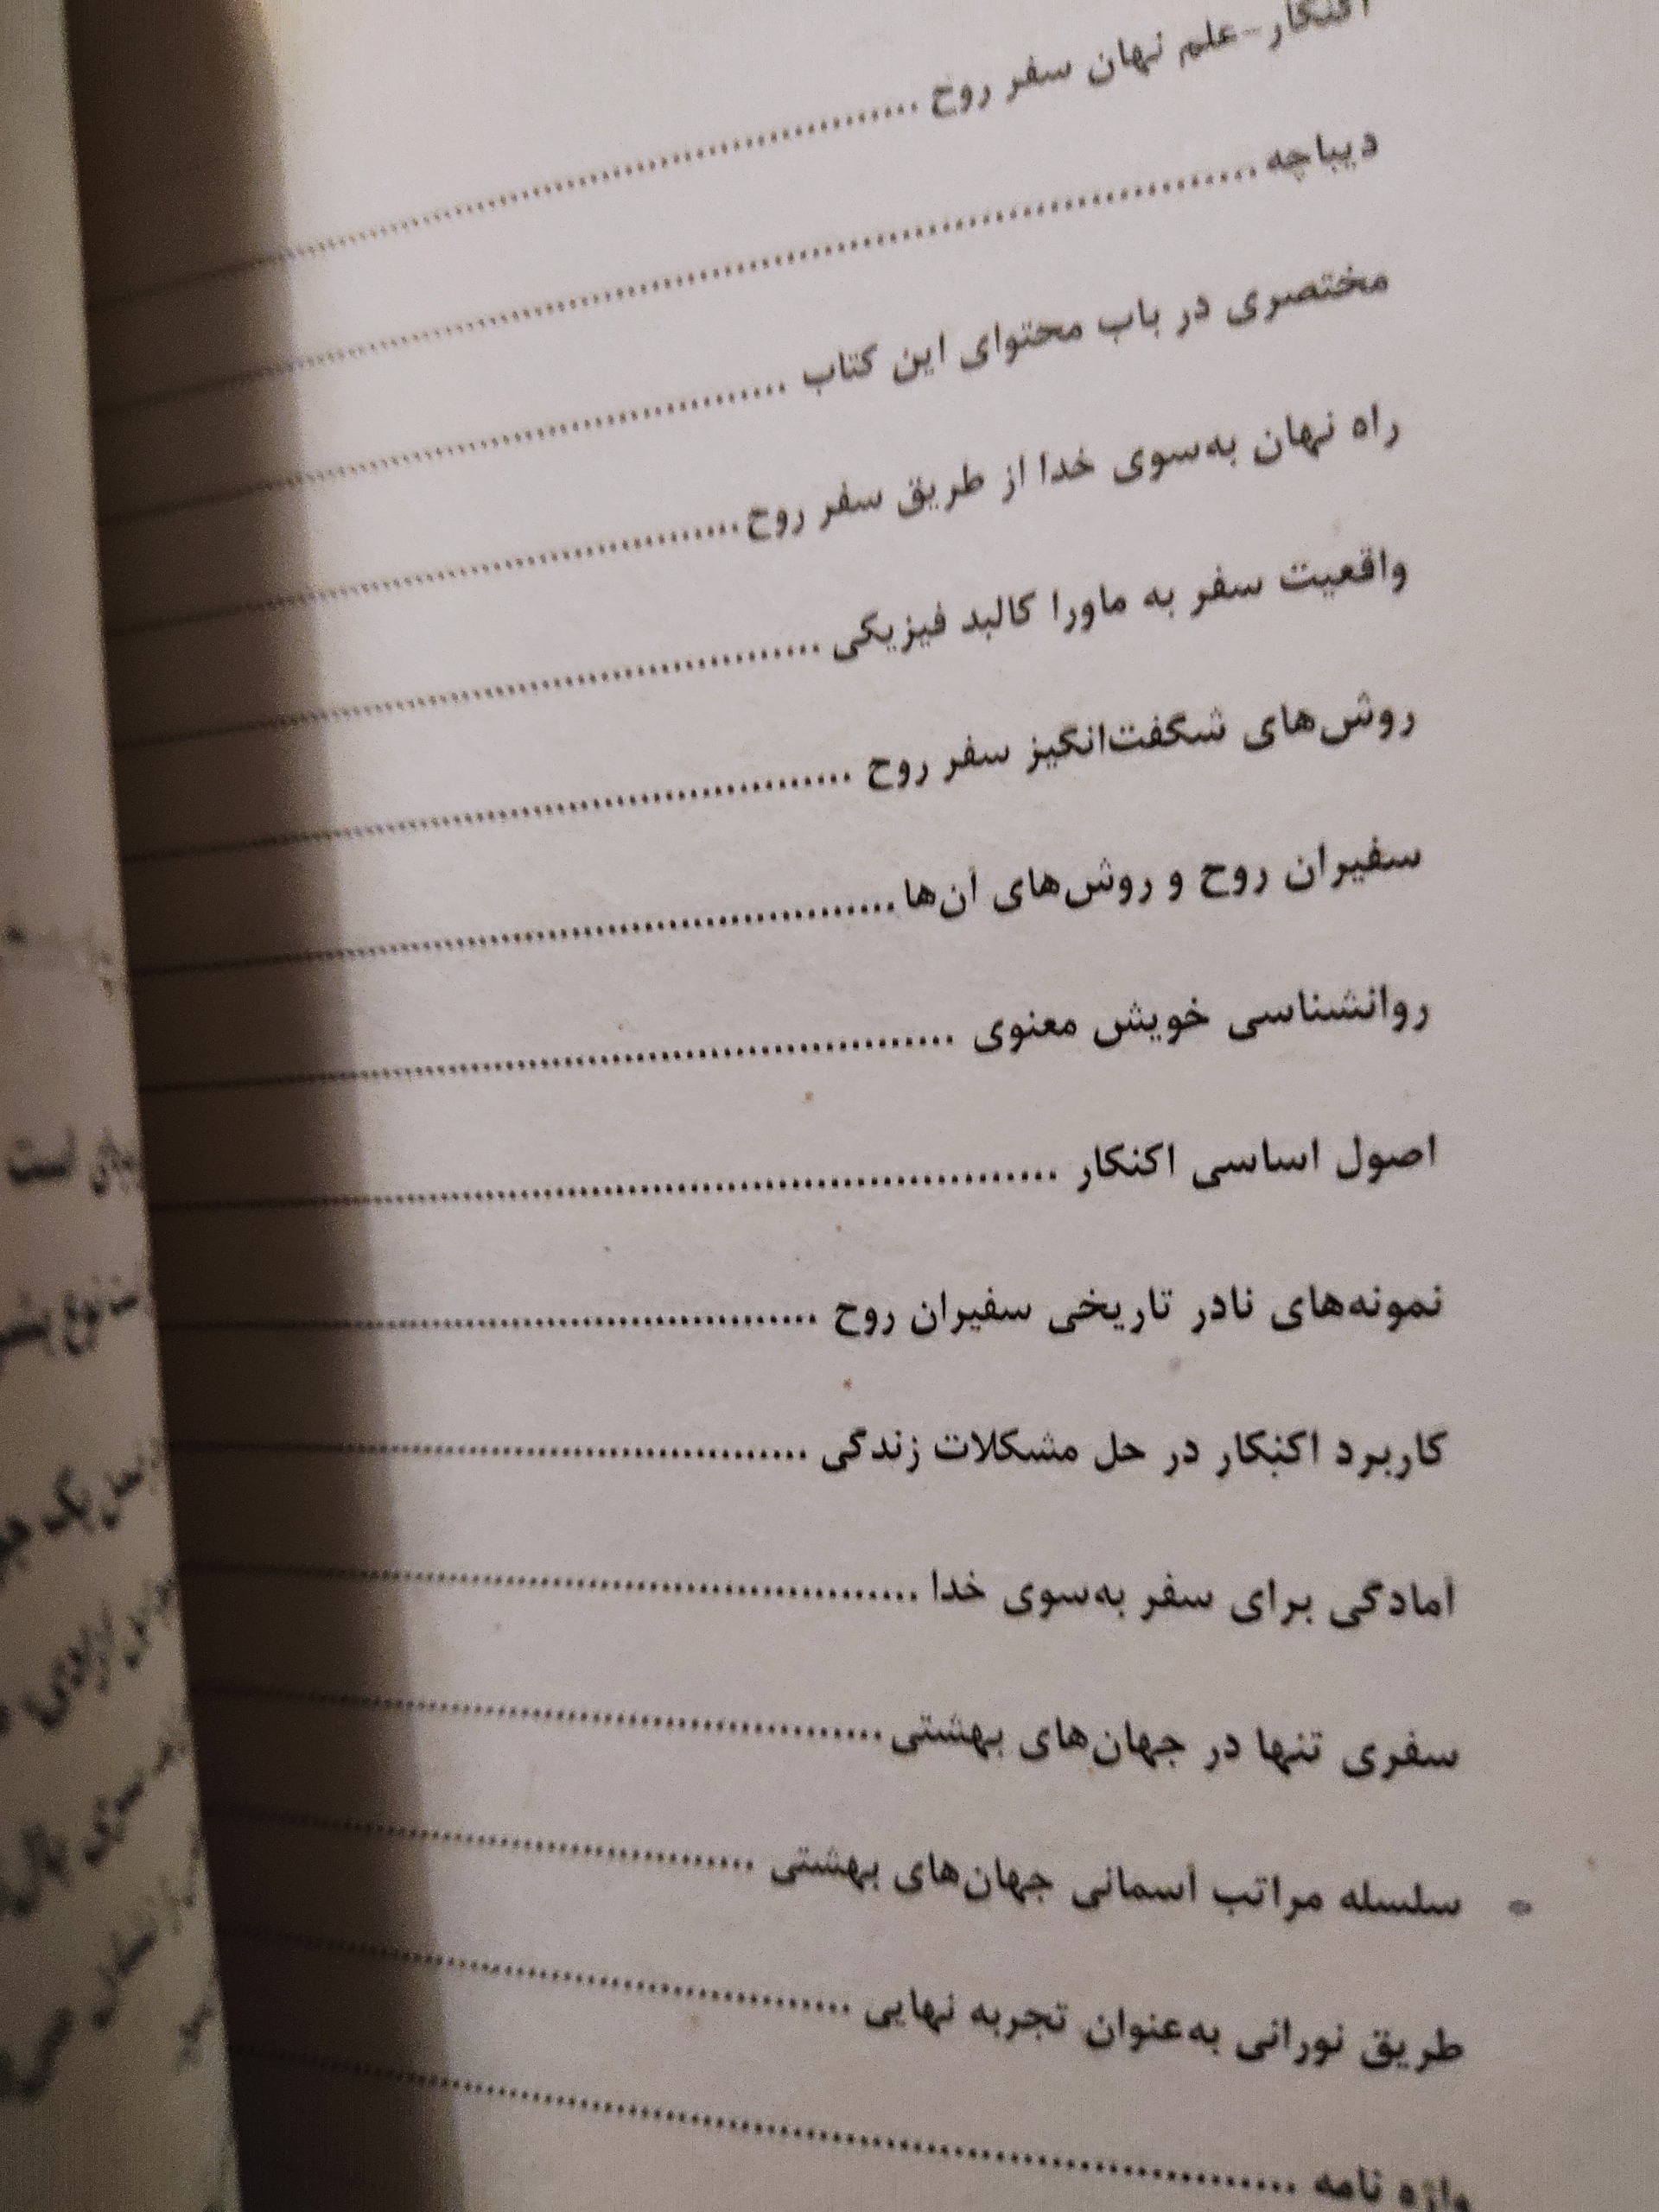 اکنکار-علم نهان سفر روح
دیباچه
مختصری در باب محتوای این کتاب
راه نهان به‌سوی خدا از طریق سفر روح
واقعیت سفر به ماورا کالبد فیزیکی
روش‌های شگفت‌انگیز سفر روح
سفیران روح و روش‌های آن‌ها
روانشناسی خویش معنوی
اصول اساسی اکنکار
نمونه‌های نادر تاریخی سفیران روح
کاربرد اکنکار در حل مشکلات زندگی
آمادگی برای سفر به‌سوی خدا
سفری تنها در جهان‌های بهشتی
سلسله مراتب آسمانی جهان‌های بهشتی
طریق نورانی به‌عنوان تجربه نهایی
واژه نامه